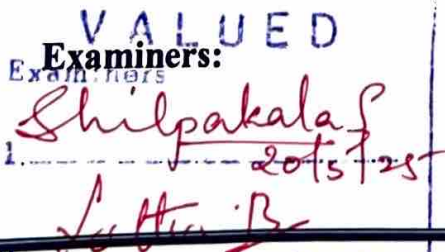 VALUED
Examiners:
Examiners
Shilpakala S
1. 20/5/25
B